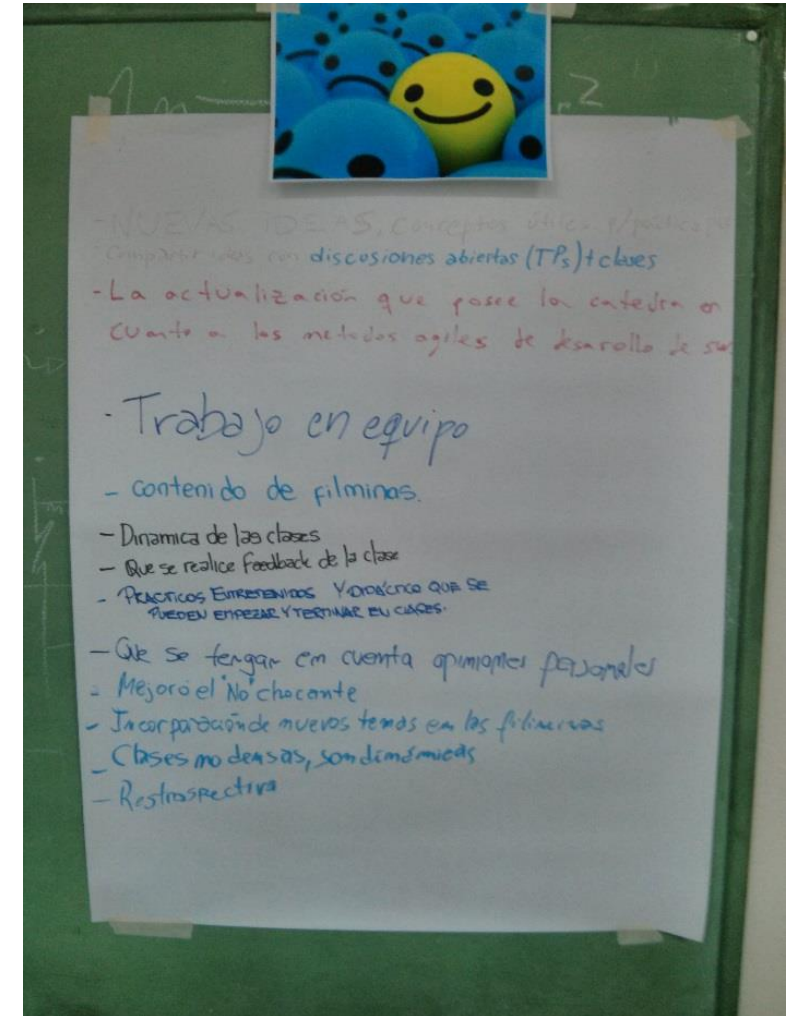 - NUEVAS IDEAS, conceptos útiles p/
Compartir ideas con discusiones abiertas (TPs) + clases
- La actualización que posee la catedra en
cuanto a los metodos agiles de desarollo de sw
- Trabajo en equipo
- contenido de filminas.
- Dinamica de las clases
- Que se realice Feedback de la clase
- PRACTICOS ENTRETENIDOS Y DIDACTICO QUE SE
PUEDEN EMPEZAR Y TERMINAR EN CLASES.
- Que se tengan em cuenta opiniones personales
- Mejoró el "No" chocante
- Incorporación de nuevos temas em las filminas
- Clases no densas, son dinámicas
- Restrospectiva